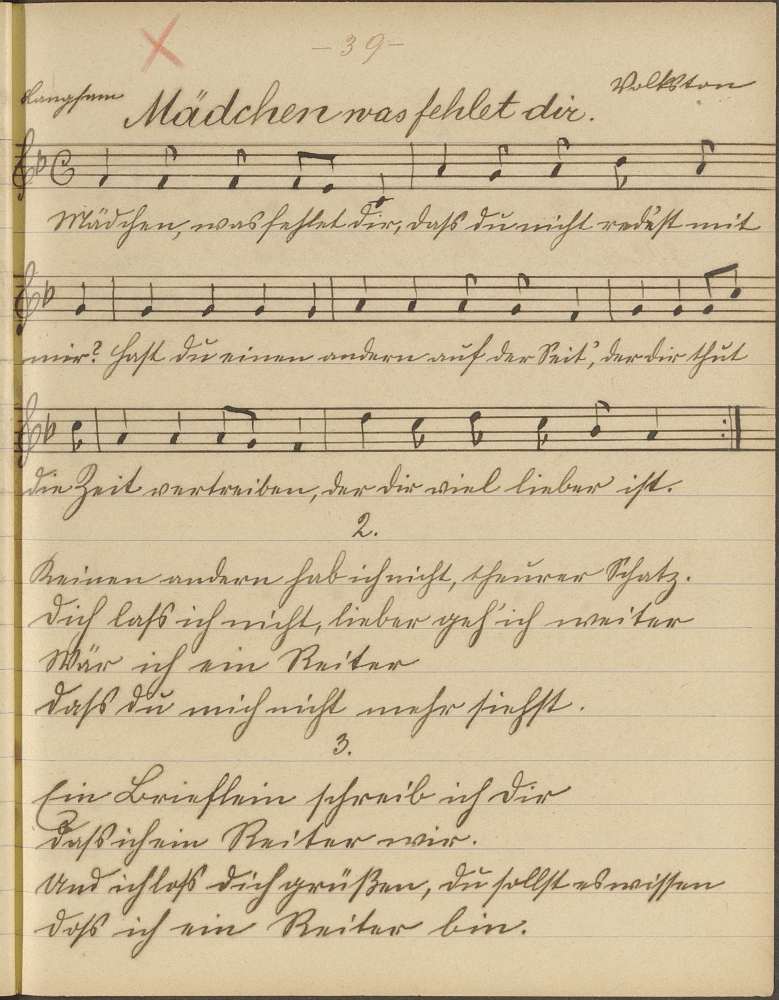 -39-
Langsam
Volkston
Mädchen was fehlet dir.
Mädchen, was fehlet dir, daß du nicht red'st mit
mir? Hast du einen andern auf der Seit', der dir thut
die Zeit vertreiben, der dir viel lieber ist.
2.
Keinen andern hab ich nicht, theurer Schatz.
Dich laß ich nicht, lieber geh' ich weiter
Wär ich ein Reiter
daß du mich nicht mehr siehst.
3.
Ein Brieflein schreib ich dir
daß ich ein Reiter wir.
Und ich laß dich grüßen, du sollst es wissen
daß ich ein Reiter bin.